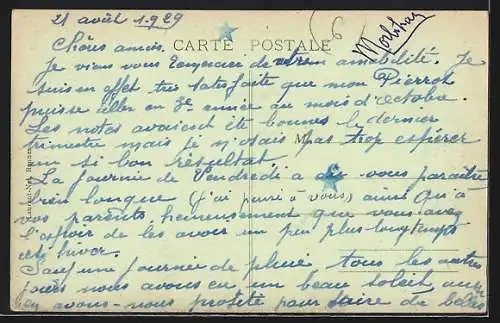 21 août 1929
6
CARTE POSTALE
Chères amies
Je viens vous remercier de votre amabilité. Je
suis en effet très satisfaite que mon Pierrot
puisse aller en 3e année au mois d'octobre.
Les notes avaient été bonnes le dernier
trimestre mais je n'osais pas trop espérer
un si bon résultat.
La journée de Vendredi a dû vous paraître
bien longue (j'ai pensé à vous) ainsi qu'à
vos parents, heureusement que vous avez
l'espoir de les avoir un peu plus longtemps
cet hiver.
Sauf une journée de pluie tous les autres
jours nous avons eu un beau soleil aussi
en avons-nous profité pour faire de belles